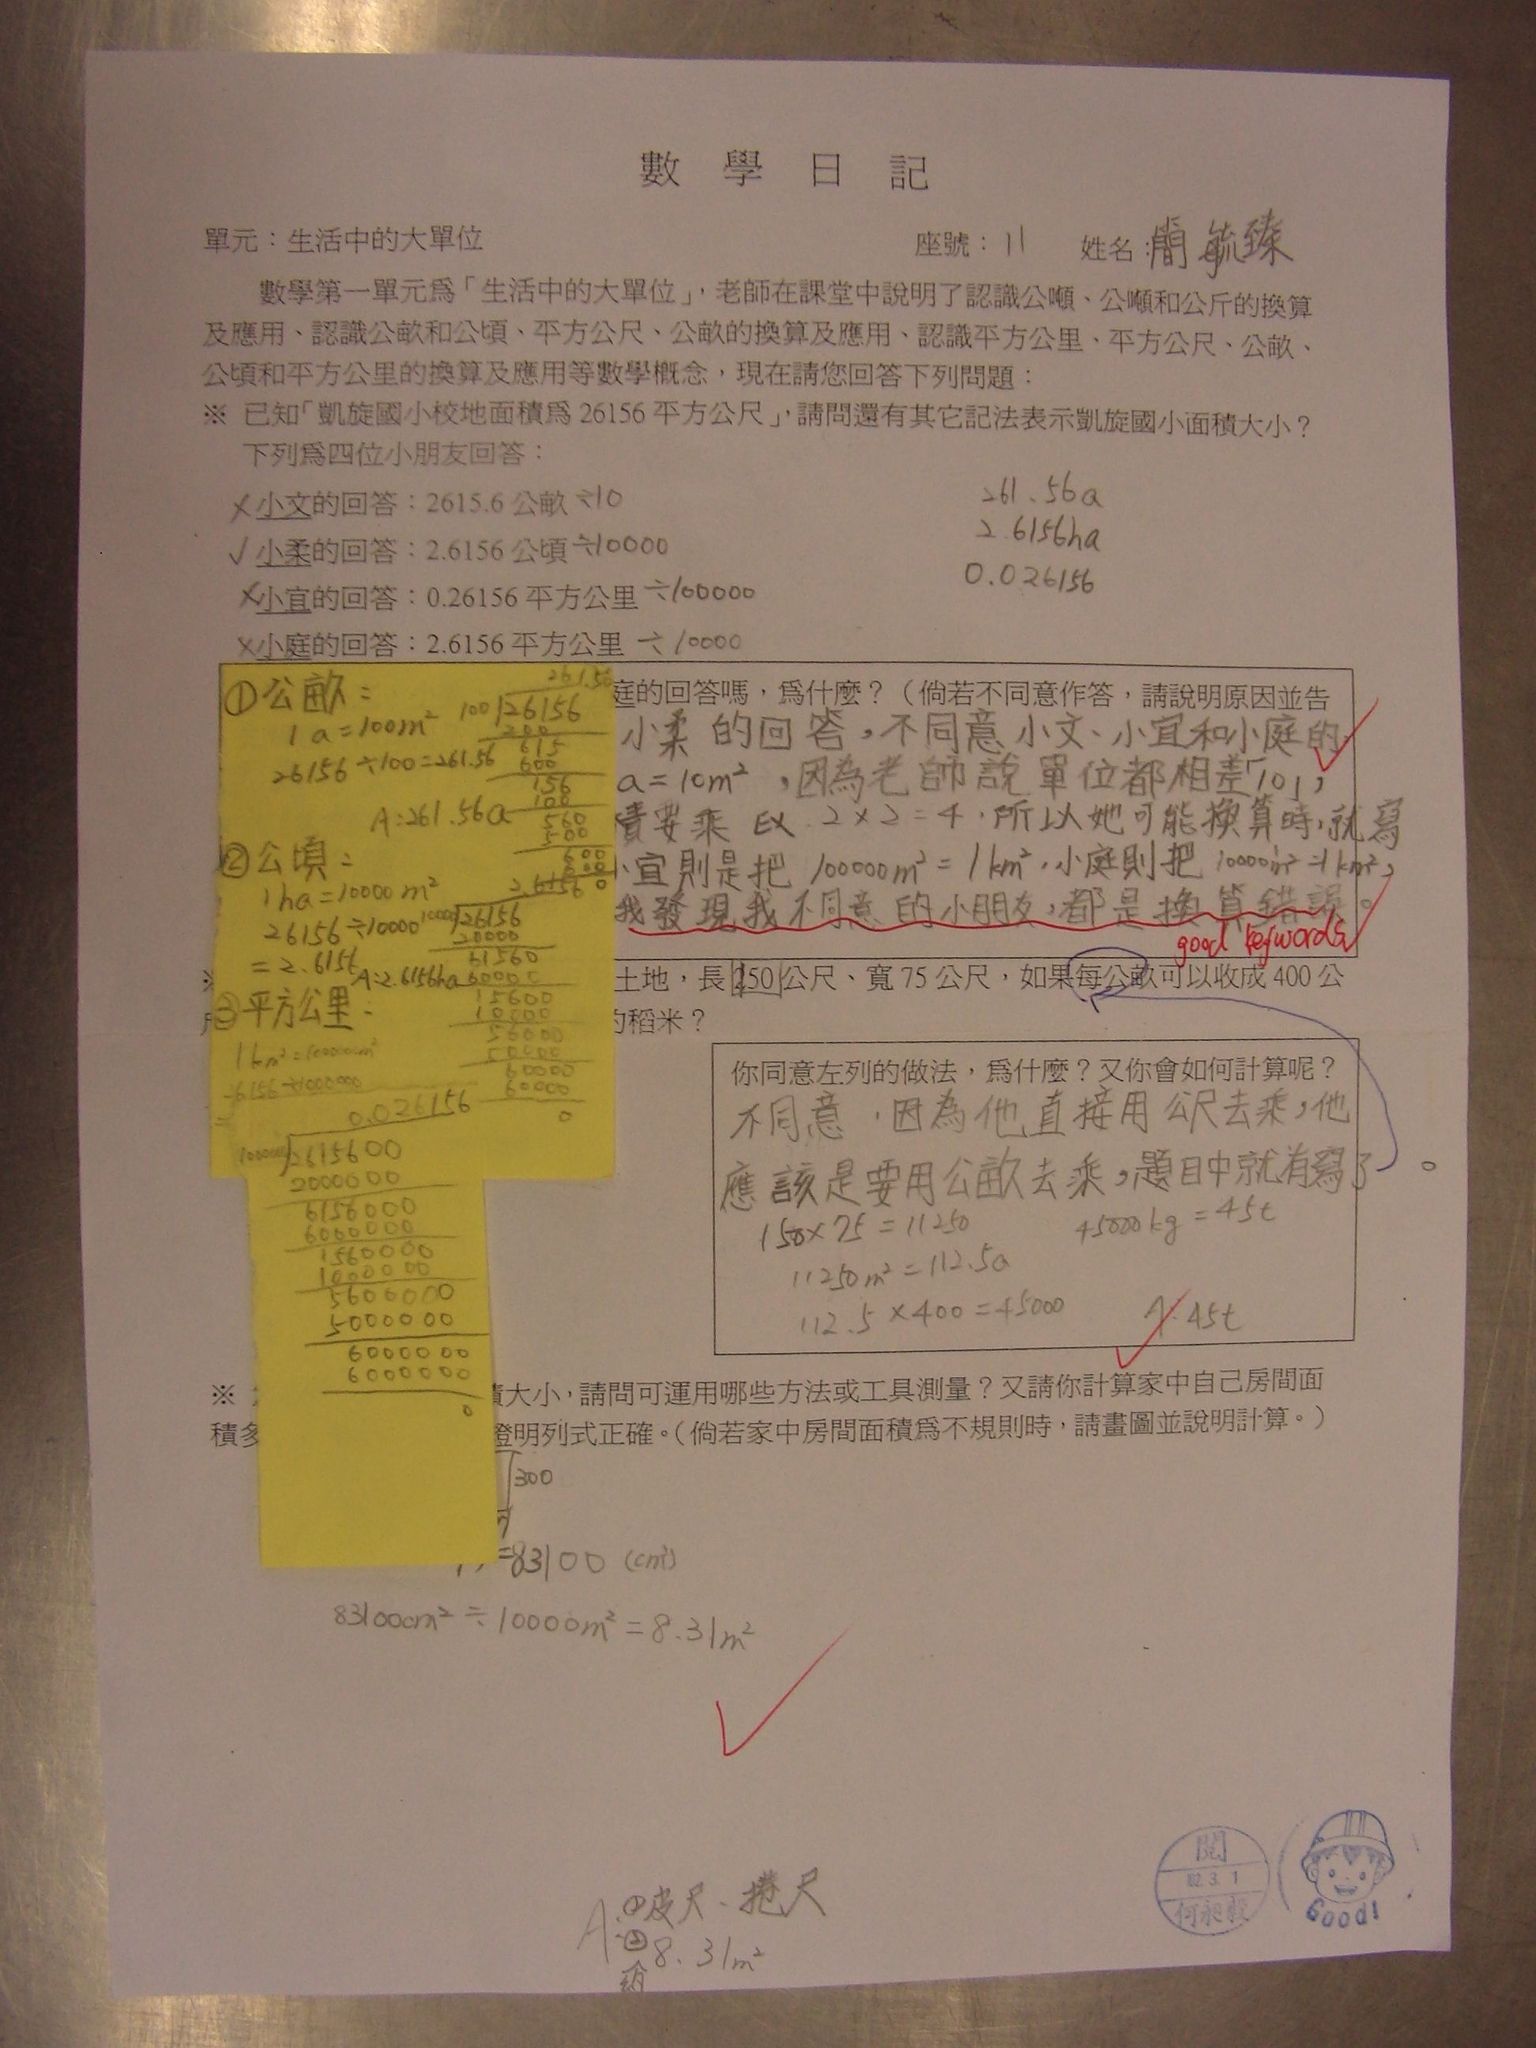 數 學 日 記
單元：生活中的大單位 座號：11 姓名：簡毓臻
數學第一單元為「生活中的大單位」，老師在課堂中說明了認識公噸、公噸和公斤的換算
及應用、認識公畝和公頃、平方公尺、公畝的換算及應用、認識平方公里、平方公尺、公畝、
公頃和平方公里的換算及應用等數學概念，現在請您回答下列問題：
※ 已知「凱旋國小校地面積為 26156 平方公尺」，請問還有其它記法表示凱旋國小面積大小？
下列為四位小朋友回答：
×小文的回答：2615.6 公畝 ÷10 261.56a
✓小柔的回答：2.6156 公頃 ÷10000 2.6156ha
×小宜的回答：0.26156 平方公里 ÷100000 0.026156
×小庭的回答：2.6156 平方公里 ÷10000
庭的回答嗎，為什麼？（倘若不同意作答，請說明原因並告
小柔的回答，不同意小文、小宜和小庭的
a=10m²，因為老師說單位都相差「10」，
積要乘 EX 2×2=4，所以她可能換算時，就寫
小宜則是把 100000m²=1km²，小庭則把 10000m²=1km²，
我發現我不同意的小朋友，都是換算錯誤。
good keywords
①公畝：
1a=100m²
26156÷100=261.56
A:261.56a
261.56
100 26156
200
615
600
156
100
560
500
600
600
0
②公頃：
1ha=10000m²
26156÷10000
=2.6156
A:2.6156ha
2.6156
10000 26156
20000
61560
60000
15600
10000
56000
50000
60000
60000
0
③平方公里：
1km²=1000000m²
0.026156
2615600
2000000
6156000
6000000
1560000
1000000
5600000
5000000
6000000
6000000
0
土地，長 150 公尺、寬 75 公尺，如果每公畝可以收成 400 公
的稻米？
你同意左列的做法，為什麼？又你會如何計算呢？
不同意，因為他直接用公尺去乘，他
應該是要用公畝去乘，題目中就有寫了。
150×75=11250 45000kg=45t
11250m²=112.5a
112.5×400=45000 A:45t
※ 積大小，請問可運用哪些方法或工具測量？又請你計算家中自己房間面
積多 證明列式正確。（倘若家中房間面積為不規則時，請畫圖並說明計算。）
300
=83100 (cm²)
83100cm²÷10000m²=8.31m²
A:①皮尺、捲尺
②8.31m²
閱
102.3.1
Good!